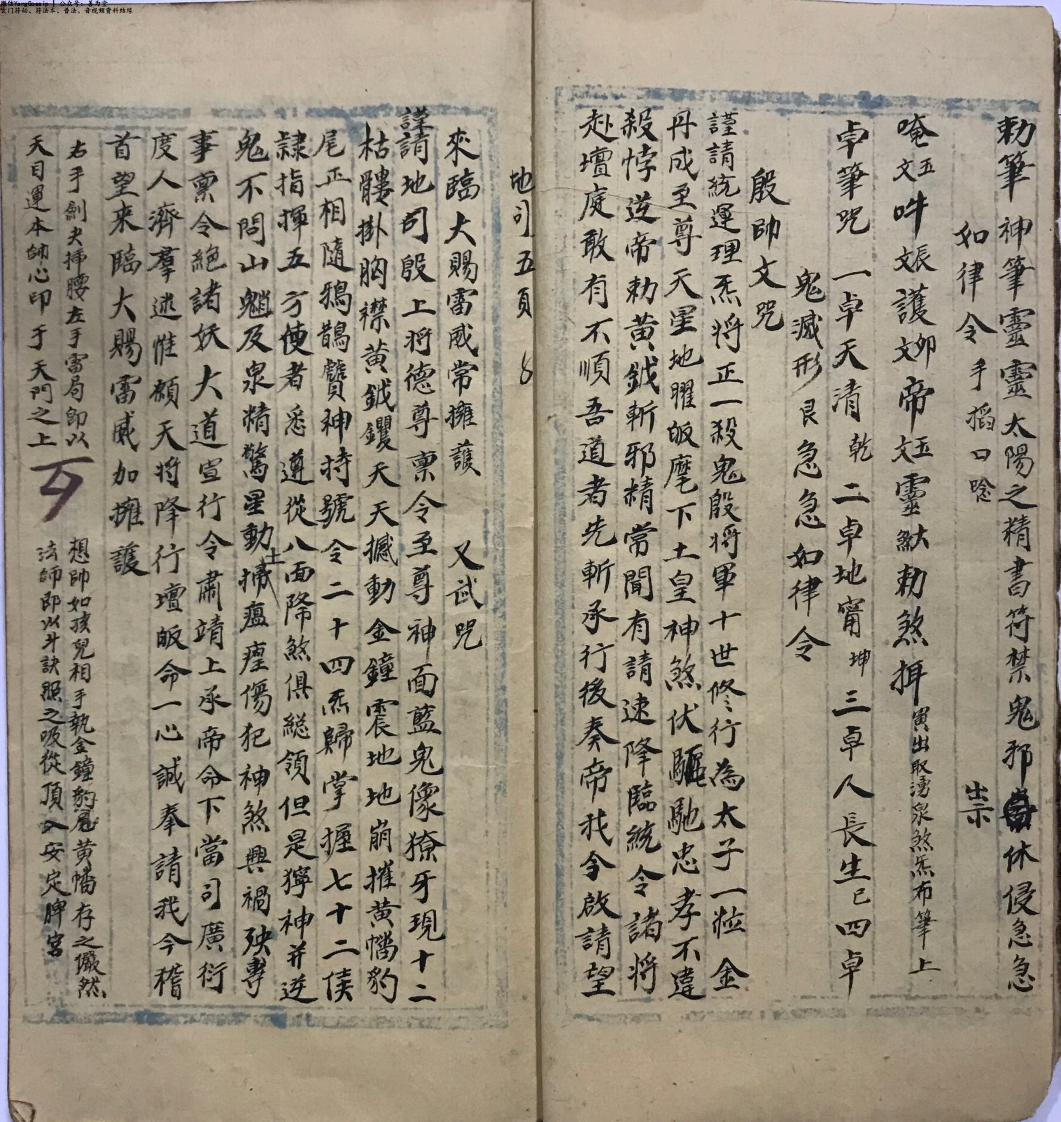 勅筆神筆靈靈太陽之精書符禁鬼邪休侵急急
如律令 手搯口唸 出示
唵五文吽長文護卯文帝玉文靈猒勅煞揖寅出取湧泉煞炁布筆上
卓筆咒 一卓天清乾 二卓地甯坤 三卓人長生巳 四卓
鬼滅形艮急急如律令
殷帥文咒
謹請統運理炁將正一殺鬼殷將軍十世修行為太子一粒金
丹成至尊天星地曜皈麾下土皇神煞伏驅馳忠孝不違
殺悖逆帝勅黃鉞斬邪精常聞有請速降臨統令諸將
赴壇庭敢有不順吾道者先斬承行後奏帝我今啟請望
地司五頁
來臨大賜雷威常擁護 又武咒
謹請地司殷上將德尊稟令至尊神面藍鬼像獠牙現十二
枯髏掛胸襟黃鉞钁天天撼動金鐘震地地崩摧黃幡豹
尾正相隨鴉鵲贊神持號令二十四炁歸掌握七十二侯
隷指揮五方使者悉遵從八面降煞俱總領但是獰神并逆
鬼不問山魈及泉精驚星動土掃瘟㾐傷犯神煞興禍殃專
事稟令絕諸妖大道宣行令肅靖上承帝命下當司廣衍
度人濟羣迷惟願天將降行壇皈命一心誠奉請我今稽
首望來臨大賜雷威加擁護
右手劍夫掃腰左手雷局即以
天目運本師心印于天門之上
想帥如孩兒相手執金鐘豹尾黃幡存之儼然
法師即以斗訣照之吸從頂入安定脾宮